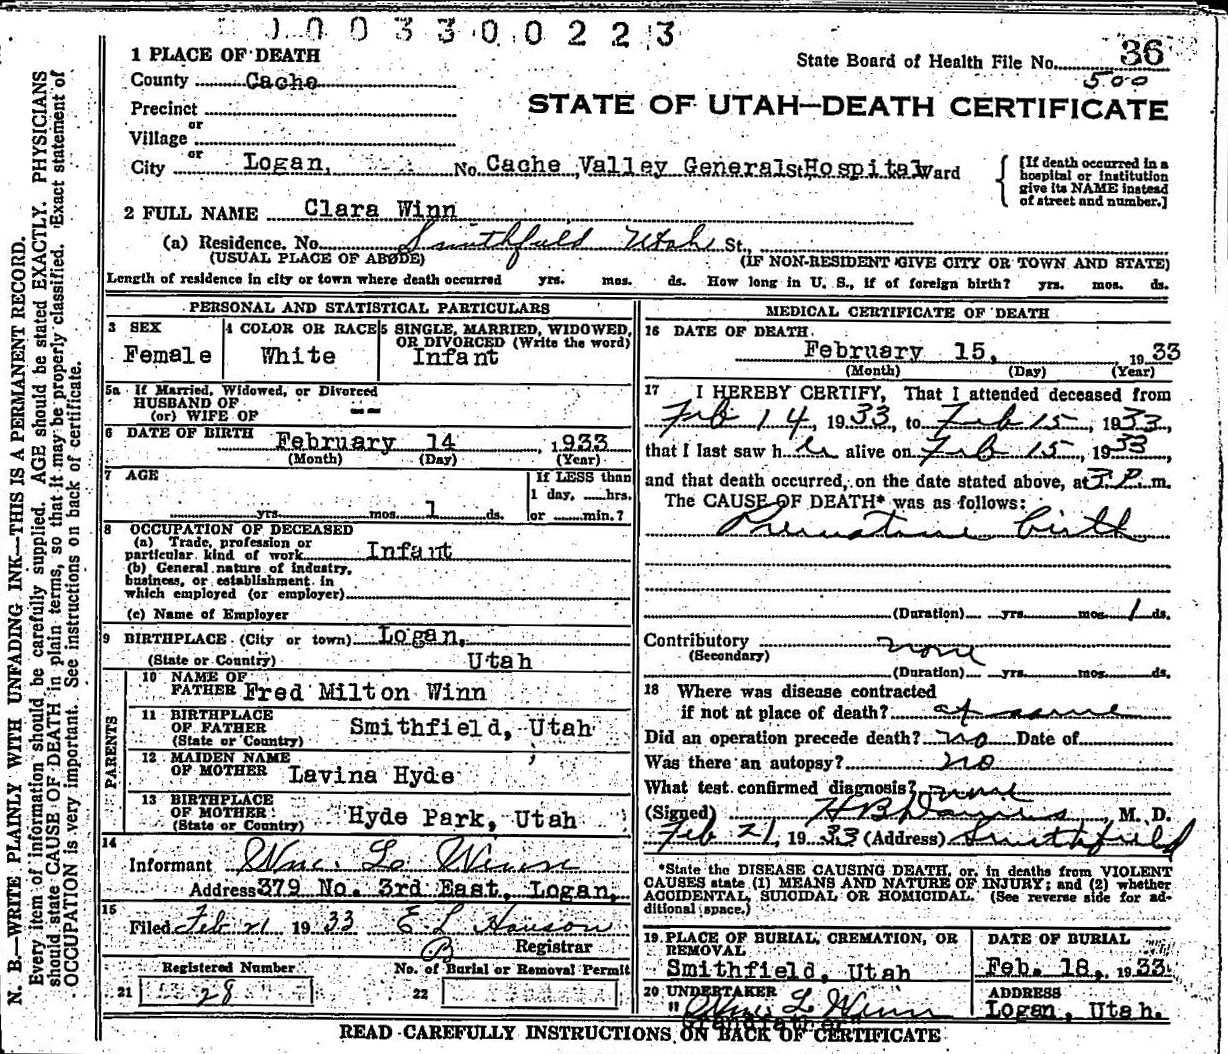 0003300223
1 PLACE OF DEATH
State Board of Health File No. 36
County Cache
500
Precinct
STATE OF UTAH—DEATH CERTIFICATE
or
Village
or
City Logan, No. Cache Valley General St. Hospital Ward
[If death occurred in a hospital or institution give its NAME instead of street and number.]
2 FULL NAME Clara Winn
(a) Residence. No. Smithfield Utah St.,
(USUAL PLACE OF ABODE) (IF NON-RESIDENT GIVE CITY OR TOWN AND STATE)
Length of residence in city or town where death occurred yrs. mos. ds. How long in U. S., if of foreign birth? yrs. mos. ds.
PERSONAL AND STATISTICAL PARTICULARS
3 SEX
Female
4 COLOR OR RACE
White
5 SINGLE, MARRIED, WIDOWED, OR DIVORCED (Write the word)
Infant
5a If Married, Widowed, or Divorced
HUSBAND OF
(or) WIFE OF --
6 DATE OF BIRTH February 14, 1933
(Month) (Day) (Year)
7 AGE
yrs. mos. 1 ds.
If LESS than
1 day, ......hrs.
or ......min.?
8 OCCUPATION OF DECEASED
(a) Trade, profession or
particular kind of work Infant
(b) General nature of industry,
business, or establishment in
which employed (or employer)
(c) Name of Employer
9 BIRTHPLACE (City or town) Logan,
(State or Country) Utah
PARENTS
10 NAME OF
FATHER Fred Milton Winn
11 BIRTHPLACE
OF FATHER Smithfield, Utah
(State or Country)
12 MAIDEN NAME
OF MOTHER Lavina Hyde
13 BIRTHPLACE
OF MOTHER Hyde Park, Utah
(State or Country)
14
Informant Wm. L. Winn
Address 379 No. 3rd East, Logan,
15
Filed Feb 21 1933 E L Hanson
B Registrar
Registered Number
21 28
No. of Burial or Removal Permit
22
MEDICAL CERTIFICATE OF DEATH
16 DATE OF DEATH
February 15, 1933
(Month) (Day) (Year)
17 I HEREBY CERTIFY, That I attended deceased from
Feb 14, 1933, to Feb 15, 1933,
that I last saw her alive on Feb 15, 1933
and that death occurred, on the date stated above, at 3 P. m.
The CAUSE OF DEATH* was as follows:
Premature birth
(Duration) yrs. mos. 1 ds.
Contributory none
(Secondary)
(Duration) yrs. mos. ds.
18 Where was disease contracted
if not at place of death? at same
Did an operation precede death? no Date of
Was there an autopsy? no
What test confirmed diagnosis? none
(Signed) H B , M. D.
Feb 21, 1933 (Address) Smithfield
*State the DISEASE CAUSING DEATH, or, in deaths from VIOLENT
CAUSES state (1) MEANS AND NATURE OF INJURY; and (2) whether
ACCIDENTAL, SUICIDAL OR HOMICIDAL. (See reverse side for ad-
ditional space.)
19 PLACE OF BURIAL, CREMATION, OR
REMOVAL
Smithfield, Utah
DATE OF BURIAL
Feb. 18, 1933
20 UNDERTAKER
" Wm L Winn
Grandfather
ADDRESS
Logan, Utah.
READ CAREFULLY INSTRUCTIONS ON BACK OF CERTIFICATE
N. B.—WRITE PLAINLY WITH UNFADING INK—THIS IS A PERMANENT RECORD.
Every item of information should be carefully supplied. AGE should be stated EXACTLY. PHYSICIANS
should state CAUSE OF DEATH in plain terms, so that it may be properly classified. Exact statement of
OCCUPATION is very important. See instructions on back of certificate.